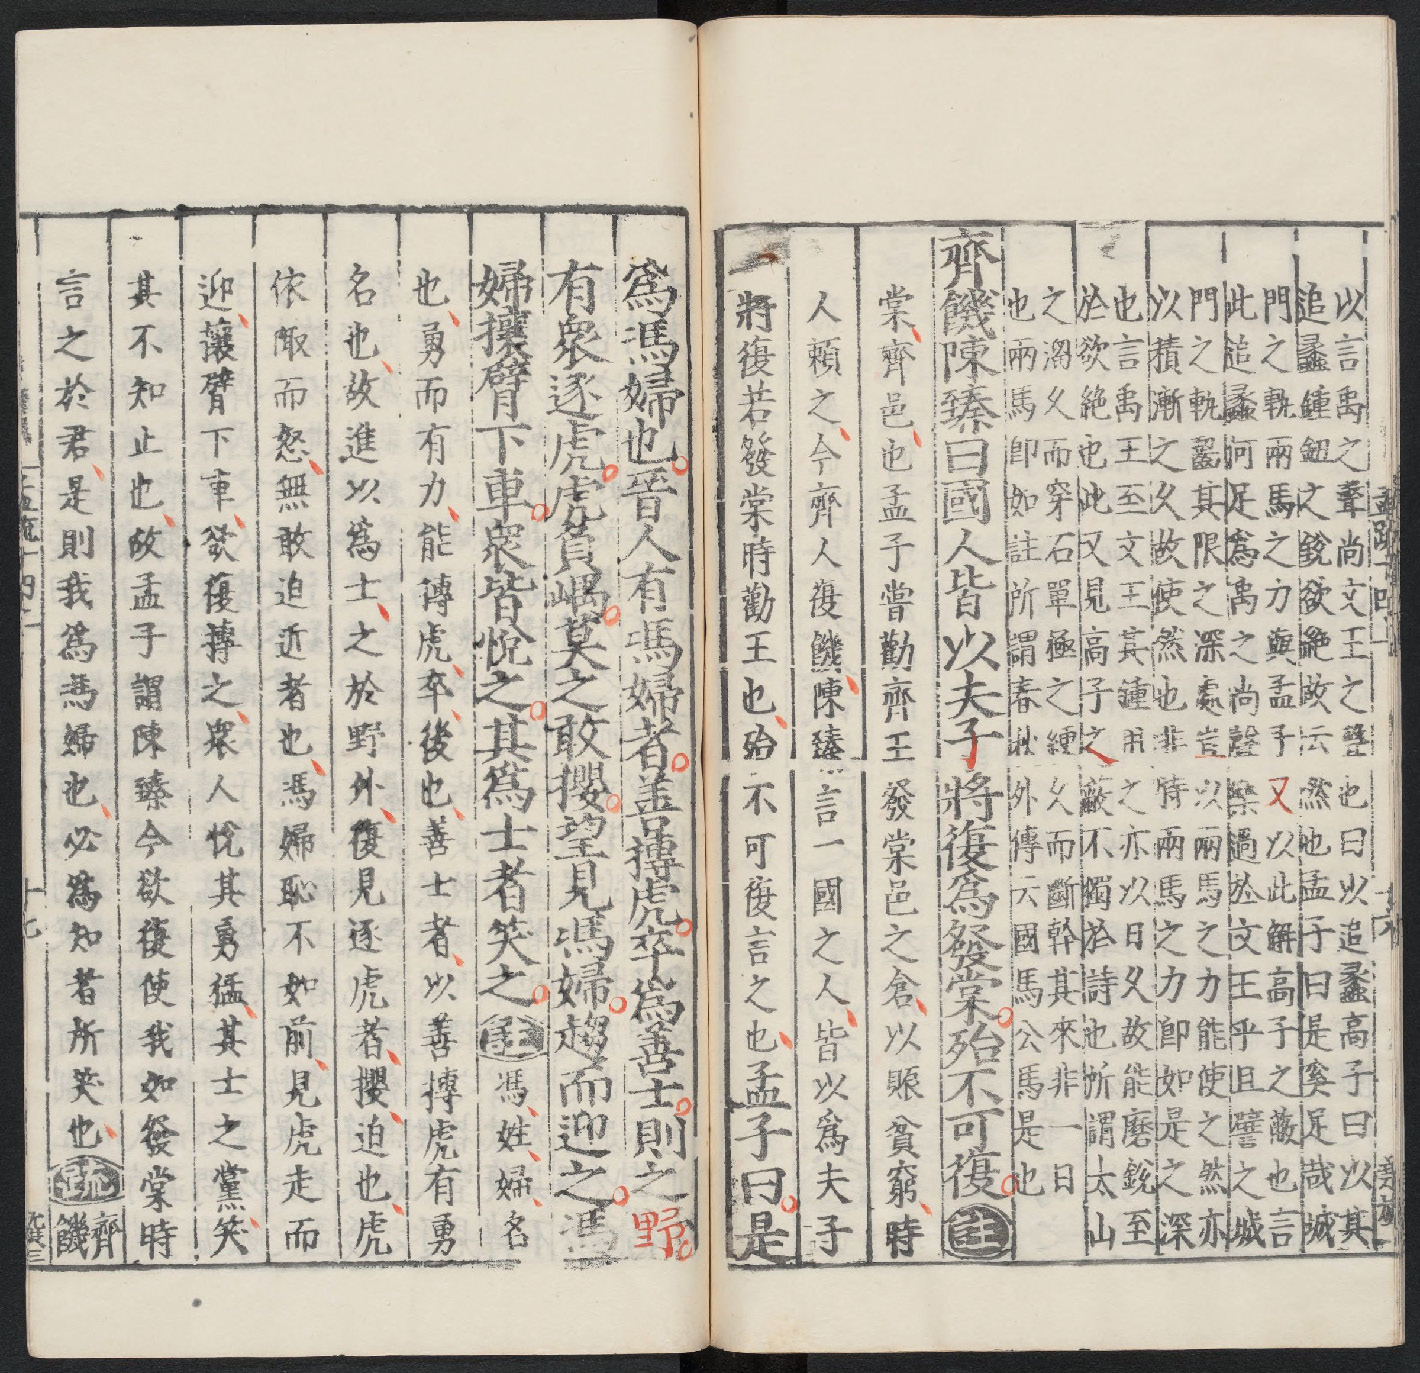 以言禹之聲尚文王之聲也曰以追蠡高子曰以其
追蠡鍾鈕之銳欲絶故云然也孟子曰是奚足哉城
門之軌兩馬之力與孟子又以此解高子之蔽也言
此追蠡何足爲禹之尚聲樂過於文王乎且譬之城
門之軌齧其限之深處豈以兩馬之力能使之然亦
以積漸之久故使然也非特兩馬之力即如是之深
也言禹王至文王其鍾用之亦以日久故能磨銳至
於欲絶也此又見高子之蔽不獨於詩也所謂太山
之溜久而穿石單極之綆久而斷幹其來非一日
也兩馬即如註所謂春秋外傳云國馬公馬是也
齊饑陳臻曰國人皆以夫子將復爲發棠殆不可復 注
棠齊邑也孟子嘗勸齊王發棠邑之倉以賑貧窮時
人頼之今齊人復饑陳臻言一國之人皆以爲夫子
將復若發棠時勸王也殆不可復言之也孟子曰是
爲馮婦也晉人有馮婦者善搏虎卒爲善士則之野
有衆逐虎虎負嵎莫之敢攖望見馮婦趨而迎之馮
婦攘臂下車衆皆悅之其爲士者笑之 注 馮姓婦名
也勇而有力能搏虎卒後也善士者以善搏虎有勇
名也故進以爲士之於野外復見逐虎者攖迫也虎
依陬而怒無敢迫近者也馮婦恥不如前見虎走而
迎攘臂下車欲復搏之衆人悅其勇猛其士之黨笑
其不知止也故孟子謂陳臻今欲復使我如發棠時
言之於君是則我爲馮婦也必爲知者所笑也 疏 齊饑